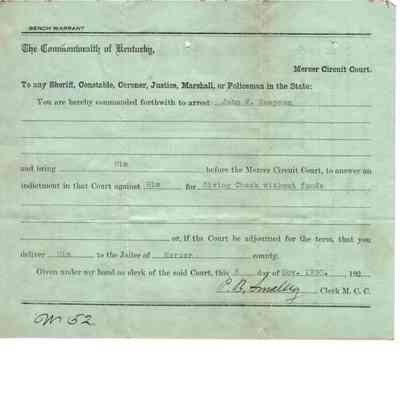 BENCH WARRANT
The Commonwealth of Kentucky,
Mercer Circuit Court.
To any Sheriff, Constable, Coroner, Justice, Marshall, or Policeman in the State:
You are hereby commanded forthwith to arrest John
and bring Him before the Mercer Circuit Court, to answer an
indictment in that Court against Him for Giving Check without funds
or, if the Court be adjourned for the term, that you
deliver Him to the Jailer of Mercer county.
Given under my hand as clerk of the said Court, this day of Nov. 1930. 192
C. B. Clerk M. C. C.
W 52